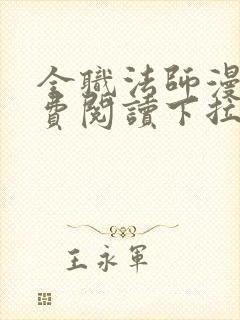 全職法師漫
費閱讀下拉
王永軍